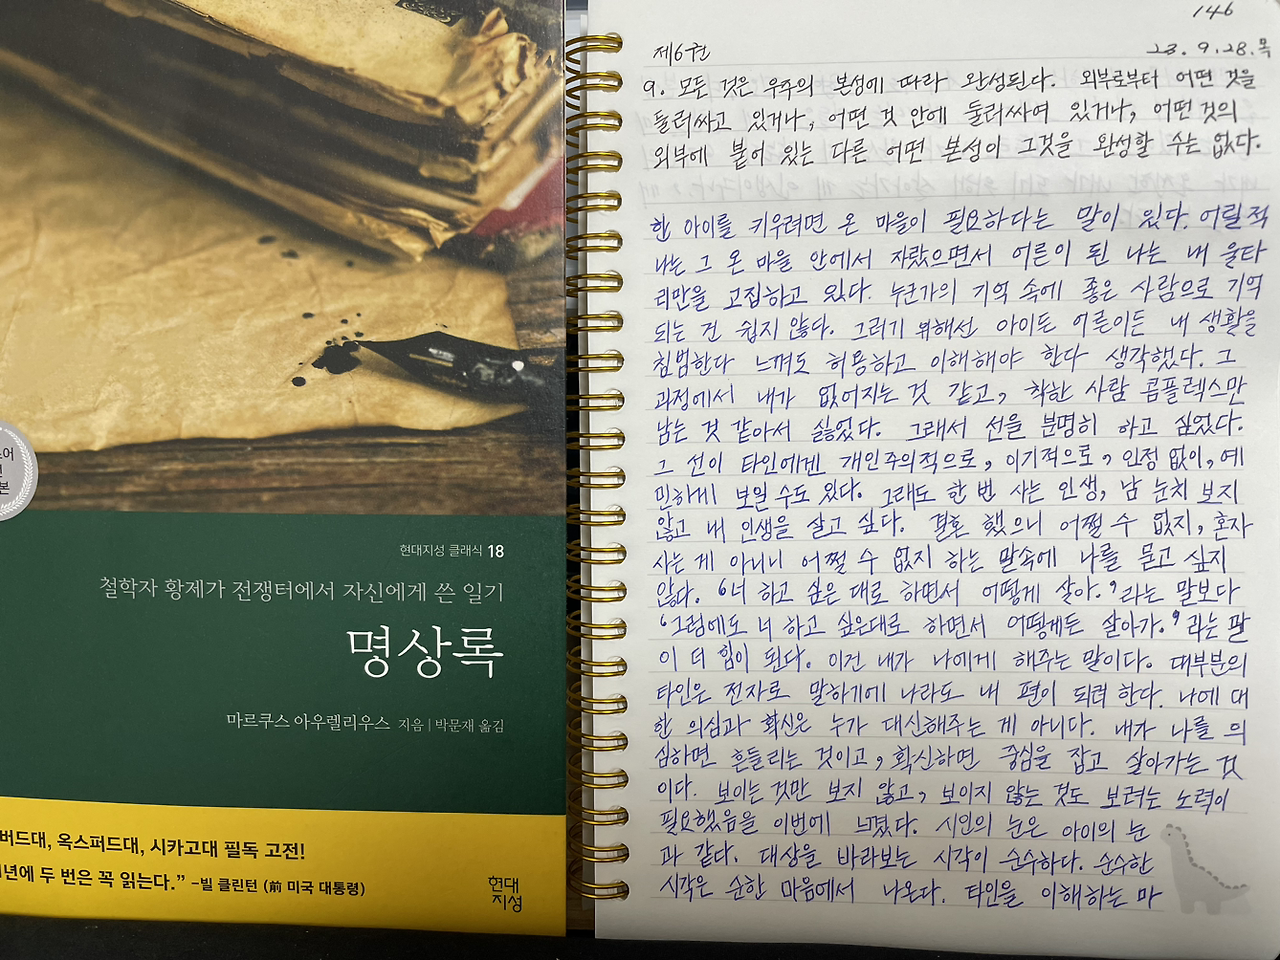 현대지성 클래식 18
철학자 황제가 전쟁터에서 자신에게 쓴 일기
명상록
마르쿠스 아우렐리우스 지음 | 박문재 옮김
버드대, 옥스퍼드대, 시카고대 필독 고전!
년에 두 번은 꼭 읽는다.” –빌 클린턴 (前 미국 대통령)
현대
지성
146
제6권 23. 9. 28. 목
9. 모든 것은 우주의 본성에 따라 완성된다. 외부로부터 어떤 것을
둘러싸고 있거나, 어떤 것 안에 둘러싸여 있거나, 어떤 것의
외부에 붙어 있는 다른 어떤 본성이 그것을 완성할 수는 없다.
한 아이를 키우려면 온 마을이 필요하다는 말이 있다. 어릴적
나는 그 온 마을 안에서 자랐으면서 어른이 된 나는 내 울타
리만을 고집하고 있다. 누군가의 기억 속에 좋은 사람으로 기억
되는 건 쉽지 않다. 그러기 위해선 아이든 어른이든 내 생활을
침범한다 느껴도 허용하고 이해해야 한다 생각했다. 그
과정에서 내가 없어지는 것 같고, 착한 사람 콤플렉스만
남는 것 같아서 싫었다. 그래서 선을 분명히 하고 싶었다.
그 선이 타인에겐 개인주의적으로, 이기적으로, 인정 없이, 예
민하게 보일 수도 있다. 그래도 한 번 사는 인생, 남 눈치 보지
않고 내 인생을 살고 싶다. 결혼 했으니 어쩔 수 없지, 혼자
사는 게 아니니 어쩔 수 없지 하는 말속에 나를 묻고 싶지
않다. ‘너 하고 싶은 대로 하면서 어떻게 살아.’라는 말보다
‘그럼에도 너 하고 싶은대로 하면서 어떻게든 살아가.’라는 말
이 더 힘이 된다. 이건 내가 나에게 해주는 말이다. 대부분의
타인은 전자로 말하기에 나라도 내 편이 되려 한다. 나에 대
한 의심과 확신은 누가 대신해주는 게 아니다. 내가 나를 의
심하면 흔들리는 것이고, 확신하면 중심을 잡고 살아가는 것
이다. 보이는 것만 보지 않고, 보이지 않는 것도 보려는 노력이
필요했음을 이번에 느꼈다. 시인의 눈은 아이의 눈
과 같다. 대상을 바라보는 시각이 순수하다. 순수한
시각은 순한 마음에서 나온다. 타인을 이해하는 마